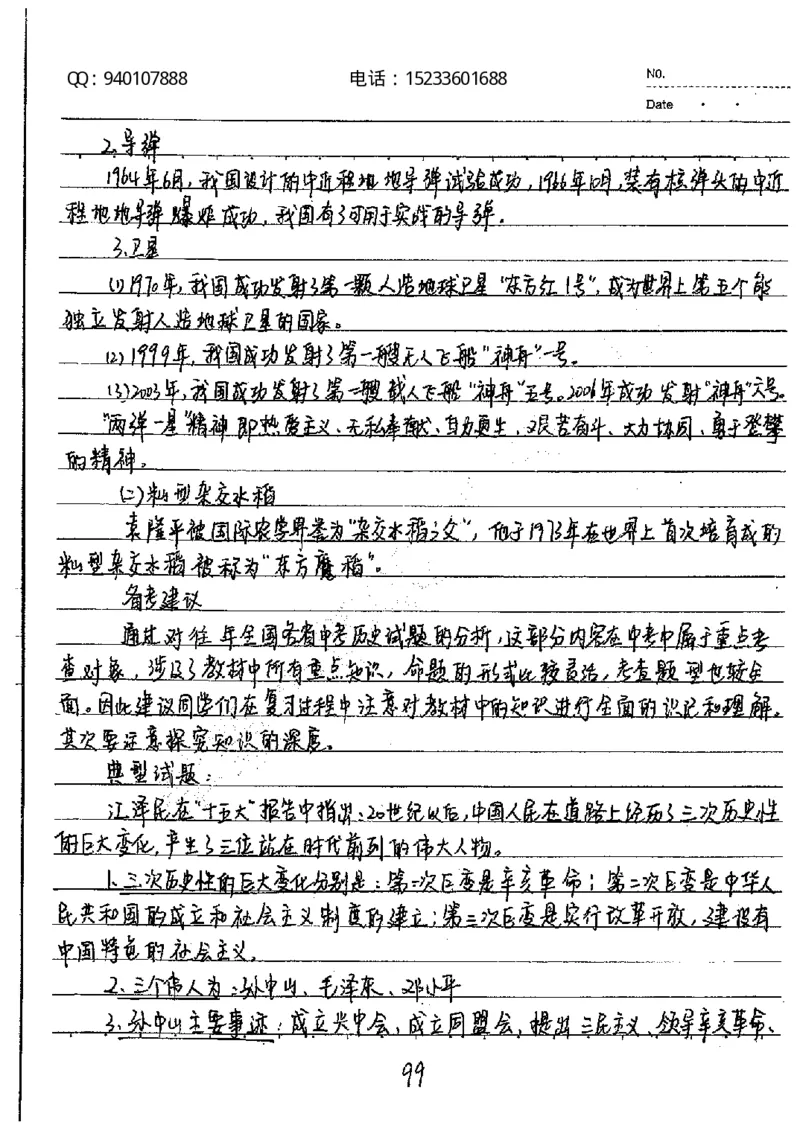 QQ：940107888 电话：15233601688 No.
Date · ·
2.导弹
1964年6月，我国设计的中近程地地导弹试验成功，1966年10月，装有核弹头的中近
程地地导弹爆炸成功，我国有了可用于实战的导弹。
3.卫星
(1)1970年，我国成功发射了第一颗人造地球卫星“东方红1号”，成为世界上第五个能
独立发射人造地球卫星的国家。
(2)1999年，我国成功发射了第一艘无人飞船“神舟”一号。
(3)2003年，我国成功发射了第一艘载人飞船“神舟”五号。2006年成功发射“神舟”六号。
“两弹一星”精神即热爱主义、无私奉献、自力更生，艰苦奋斗、大力协同、勇于登攀
的精神。
(二)籼型杂交水稻
袁隆平被国际农学界誉为“杂交水稻之父”，他于1973年在世界上首次培育成的
籼型杂交水稻被称为“东方魔稻”。
备考建议
通过对往年全国各省中考历史试题的分析，这部分内容在中考中属于重点考
查对象，涉及了教材中所有重点知识，命题的形式比较灵活，考查题型也较全
面。因此建议同学们在复习过程中注意对教材中的知识进行全面的识记和理解。
其次要注意探究知识的深度。
典型试题：
江泽民在“十五大”报告中指出：20世纪以后，中国人民在道路上经历了三次历史性
的巨大变化，产生了三位站在时代前列的伟大人物。
1.三次历史性的巨大变化分别是：第一次巨变是辛亥革命；第二次巨变是中华人
民共和国的成立和社会主义制度的建立；第三次巨变是实行改革开放，建设有
中国特色的社会主义。
2.三个伟人为：孙中山、毛泽东、邓小平
3.孙中山主要事迹：成立兴中会，成立同盟会，提出三民主义、领导辛亥革命、
99